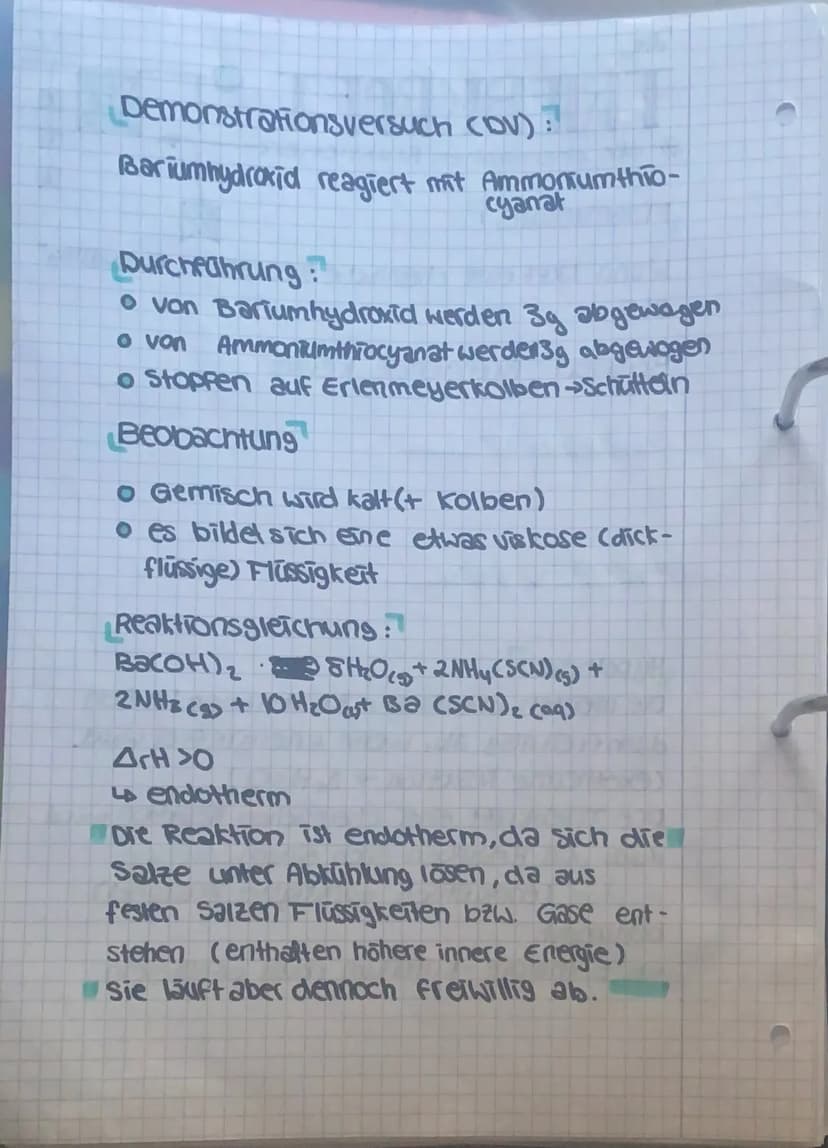 Demonstrationsversuch (DV):
Bariumhydroxid reagiert mit Ammoniumthio-
cyanat
Durchführung:
○ von Bariumhydroxid werden 3g abgewagen
○ von Ammoniumthiocyanat werden 3g abgewogen
○ Stopfen auf Erlenmeyerkolben → Schütteln
Beobachtung
○ Gemisch wird kalt (+ Kolben)
○ es bildet sich eine etwas viskose (dick-
flüssige) Flüssigkeit
Reaktionsgleichung:
Ba(OH)₂ · 8H₂O(s) + 2NH₄(SCN)(s) +
2NH₃(g) + 10H₂O(l) + Ba(SCN)₂(aq)
ΔrH >0
↳ endotherm
Die Reaktion ist endotherm, da sich die
Salze unter Abkühlung lösen, da aus
festen Salzen Flüssigkeiten bzw. Gase ent-
stehen (enthalten höhere innere Energie)
Sie läuft aber dennoch freiwillig ab.